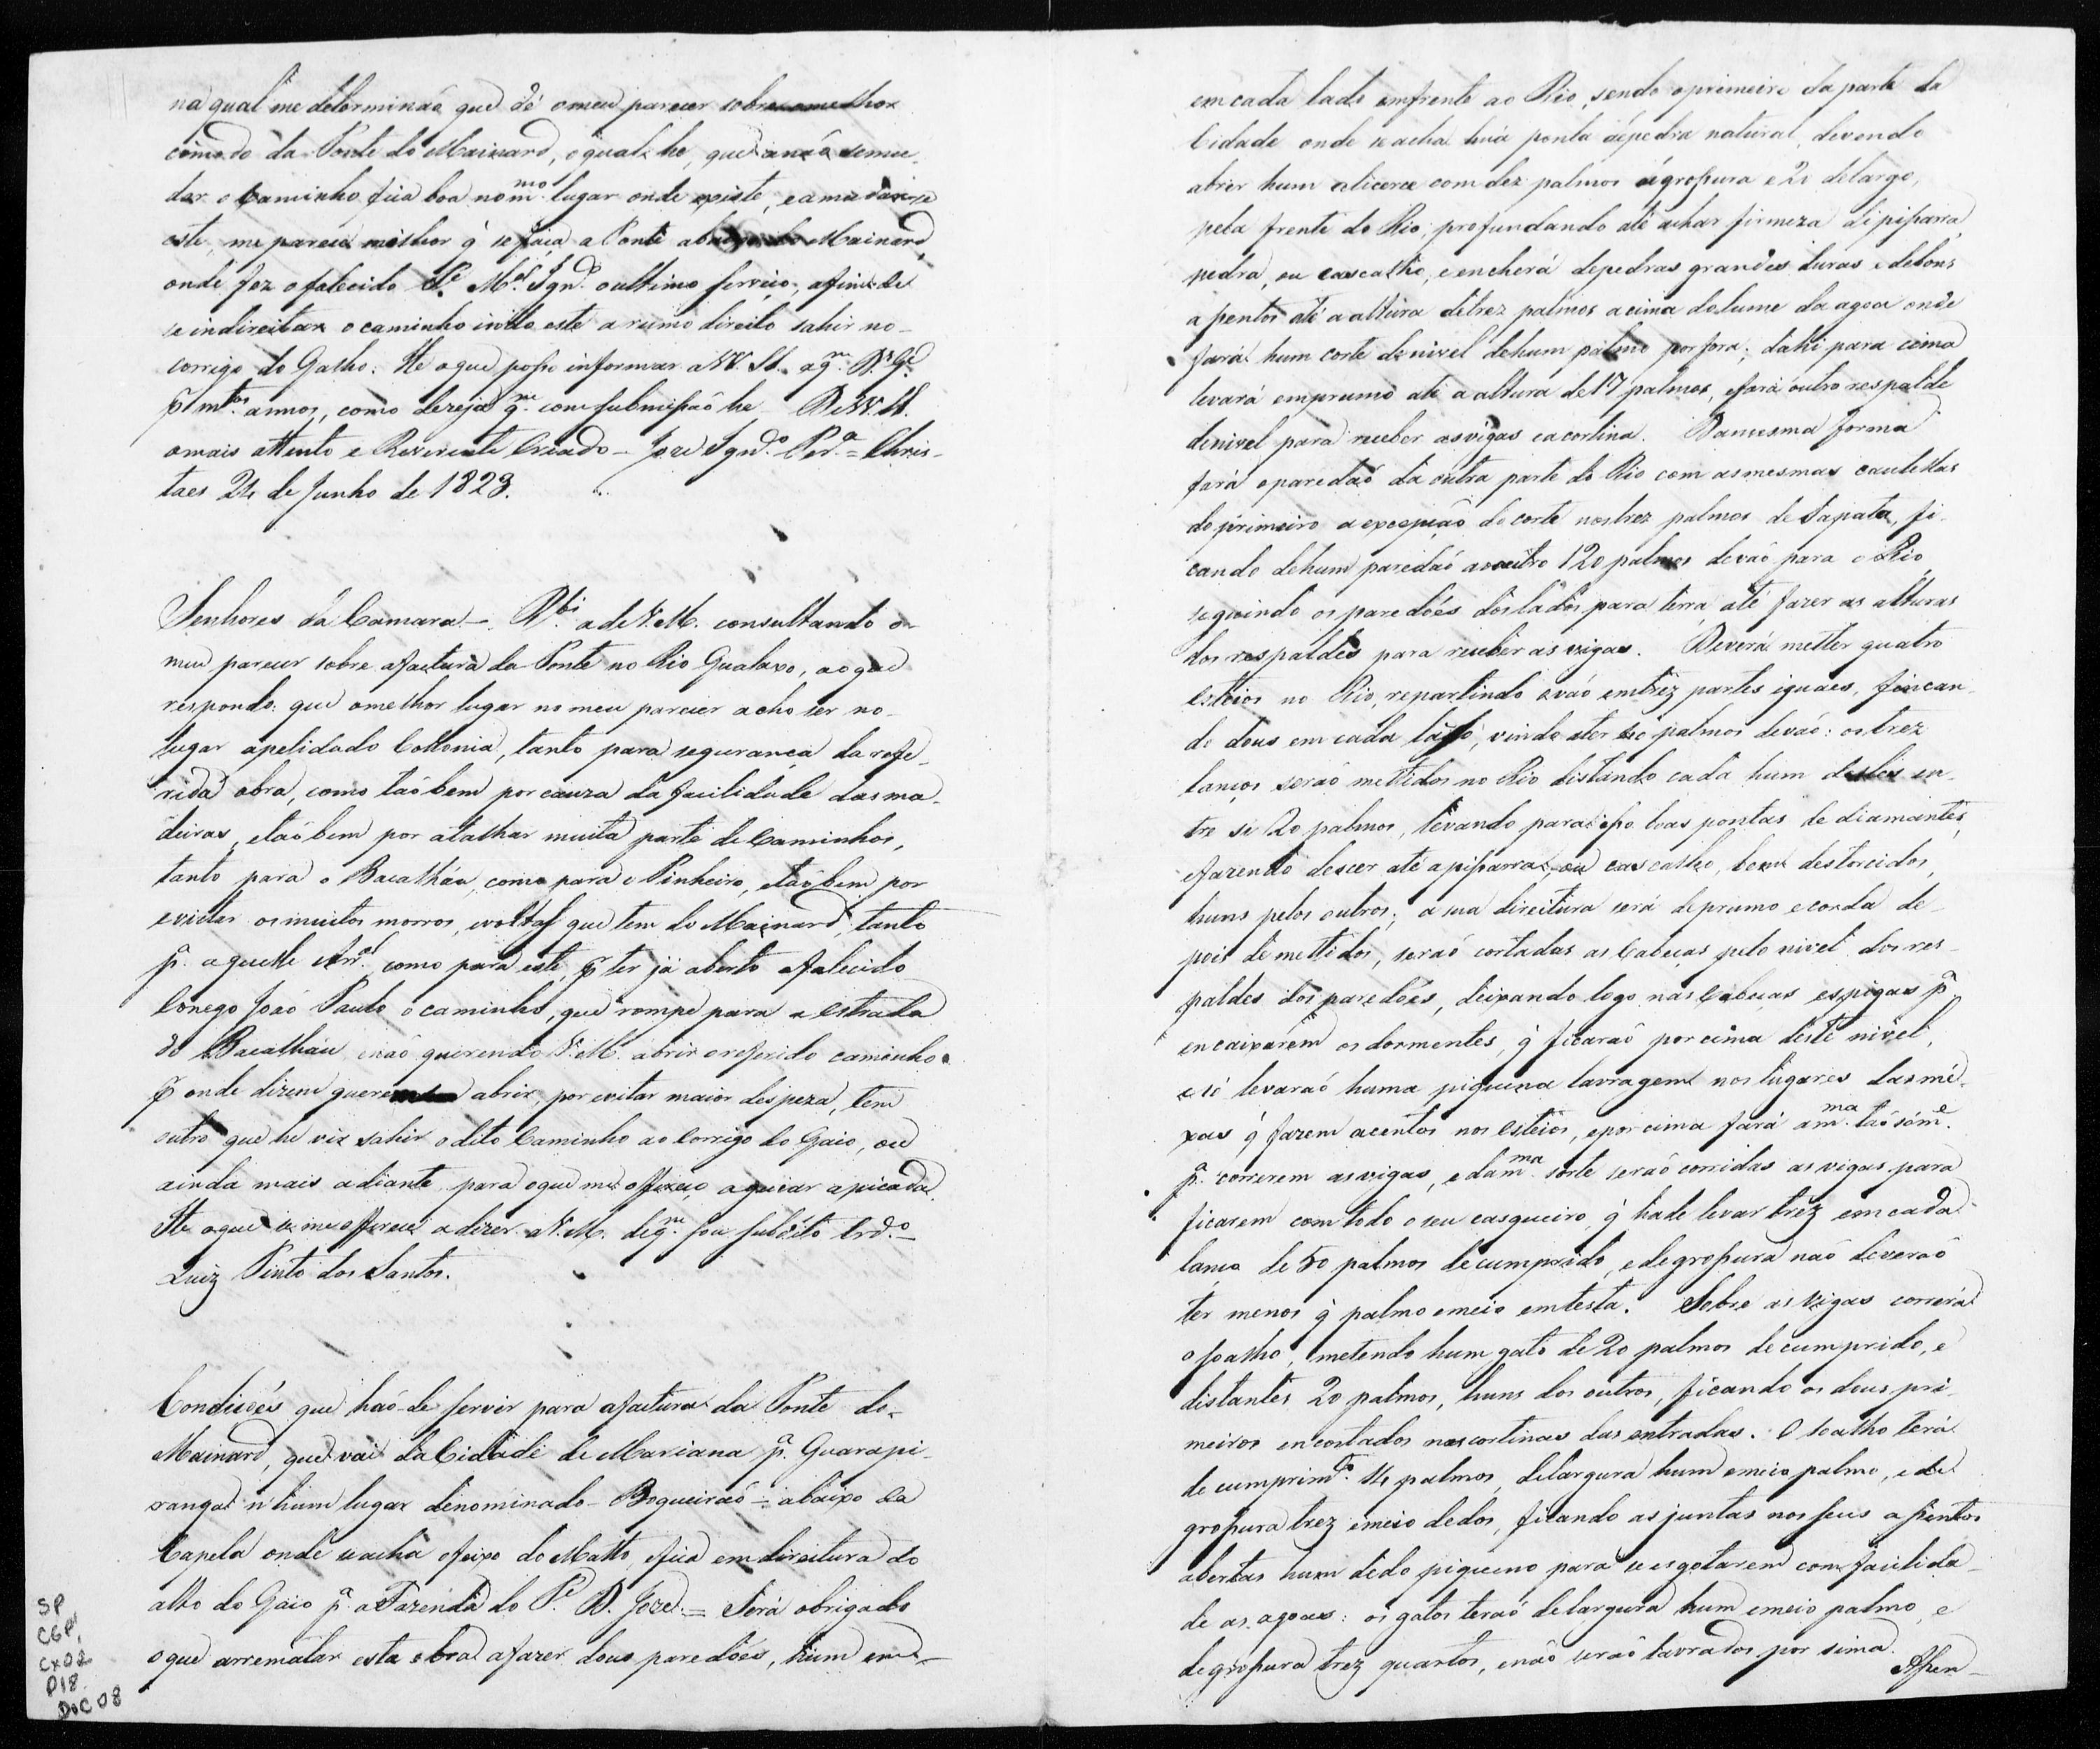 na qual me determinaõ que dê o meu parecer sobre o melhor
cómodo da Ponte do Mainard, o qual he, que a naõ se mu-
dar o Caminho fica boa no m.mo lugar onde existe, e a mudar-se
este, me parece milhor q̃ se faça a Ponte abaixo do Mainard,
onde fez o falecido P.e M.el Ign.º o ultimo serviço, afim de
se indireitar o caminho indo este a rumo direito sahir no
corrigo do Galho. He o que posso informar a VV. SS. a q.m D.s G.e
p̃ m.tos annos, como dezeja q.m com submissaõ he De VV. SS.
o mais attento e Reverente Creado - Joze Ign.º Per.ª = Chris-
taes 24 de Junho de 1823.
Senhores da Camara - R.bi a de V. M. consultando o
meu parecer sobre a factura da Ponte no Rio Gualaxo, ao que
respondo: que o melhor lugar no meu parecer acho ser no
lugar apelidado Collonia, tanto para segurança da refe-
rida obra, como taõbem por cauza da facilidade das ma-
deiras, e taõbem por atalhar muita parte de Caminhos,
tanto para o Bacalháu, como para o Pinheiro, e taõbem por
evitar os muitos morros, e voltas que tem do Mainard, tanto
p.ª aquelle Arr.al como para este, p̃ ter já aberto o falecido
Conego Joaõ Paulo o caminho, que rompe para a Estrada
do Bacalháu e naõ querendo V. M. abrir o referido caminho
p̃ onde dizem querem abrir, por evitar maior despeza, tem
outro que he vir sahir o dito Caminho ao Corrigo do Gaio, ou
ainda mais adiante para o que me offereço a guiar a picada.
He o que se me offerece a dizer a V. M. de q.m sou subdito Crd.º -
Luiz Pinto dos Santos.
Condiçoẽs que haõ-de servir para a factura da Ponte do
Mainard, que vai da Cidade de Mariana p.ª Guarapi-
ranga n'hum lugar denominado - Boqueiraõ - abaixo da
Capela onde se acha o feixo do Matto, e fica em direitura do
alto do Gaio p.ª a Fazenda do P.e D. Joze = Será obrigado
o que arrematar esta obra a fazer dous paredoẽs, hum em
SP
CGP,
Cx02
D18.
DOC 08
em cada lado emfrente ao Rio, sendo o primeiro da parte da
Cidade onde se acha huã ponta de pedra natural, devendo
abrir hum alicerce com dez palmos de grossura e 20 de largo,
pela frente do Rio; profundando até achar firmeza de pissarra,
pedra, ou cascalho, e encherá de pedras grandes duras e de bons
assentos até a altura de trez palmos acima do lume da agoa onde
fará hum corte de nivel de hum palmo por fora; dahi para cima
levará em prumo até a altura de 17 palmos, e fará outro respalde
de nivel para receber as vigas e a cortina. Da mesma forma
fará o paredaõ da outra parte do Rio com as mesmas cautellas
do primeiro a excepçaõ do corte nos trez palmos de Sapata, fi-
cando de hum paredaõ ao outro 120 palmos de vaõ para o Rio
seguindo os paredoẽs dos lados para terra até fazer as alturas
dos respaldes para receber as vigas. Deverá metter quatro
Esteios no Rio, repartindo o vaõ em trez partes iguaes, fincan-
do dous em cada lado, vindo a ter palmos de vaõ: os trez
lanços seraõ mettidos no Rio distando cada hum destes en-
tre si 20 palmos, levando para isso boas pontas de diamantes,
e fazendo descer até a pissarra, ou cascalho, bem destorcidos,
huns pelos outros; a sua direitura será de prumo e corda de-
pois de mettidos, seraõ cortadas as Cabeças pelo nivel dos res-
paldes dos paredoẽs, deixando logo nas Cabeças espigas p.ª
encaixarem os dormentes, q̃ ficaraõ por cima deste nivel,
e só levaraõ huma piquena lavragem nos lugares das mé-
xas q̃ fazem acentos nos Esteios, e por cima fará a m.ma taõ sóm.e
p.ª correrem as vigas, e da m.ma sorte seraõ corridas as vigas para
ficarem com todo o seu casqueiro q̃ hade levar trez em cada
lanço de 50 palmos de cumprido, e de grossura naõ deveraõ
ter menos q̃ palmo e meio em testa. Sobre as vigas correrá
o soalho, metendo hum gato de 20 palmos de cumprido, e
distantes 20 palmos, huns dos outros, ficando os dous pri-
meiros encostados nas cortinas das entradas. O soalho terá
de cumprim.to 14 palmos, de largura hum e meio palmo, e de
grossura trez e meio dedos, ficando as juntas nos seus assentos
abertas hum dedo piqueno para se esgotarem com facilida-
de as agoas: os gatos teraõ de largura hum e meio palmo, e
de grossura trez quartos, e naõ seraõ lavrados por sima.
Assen-